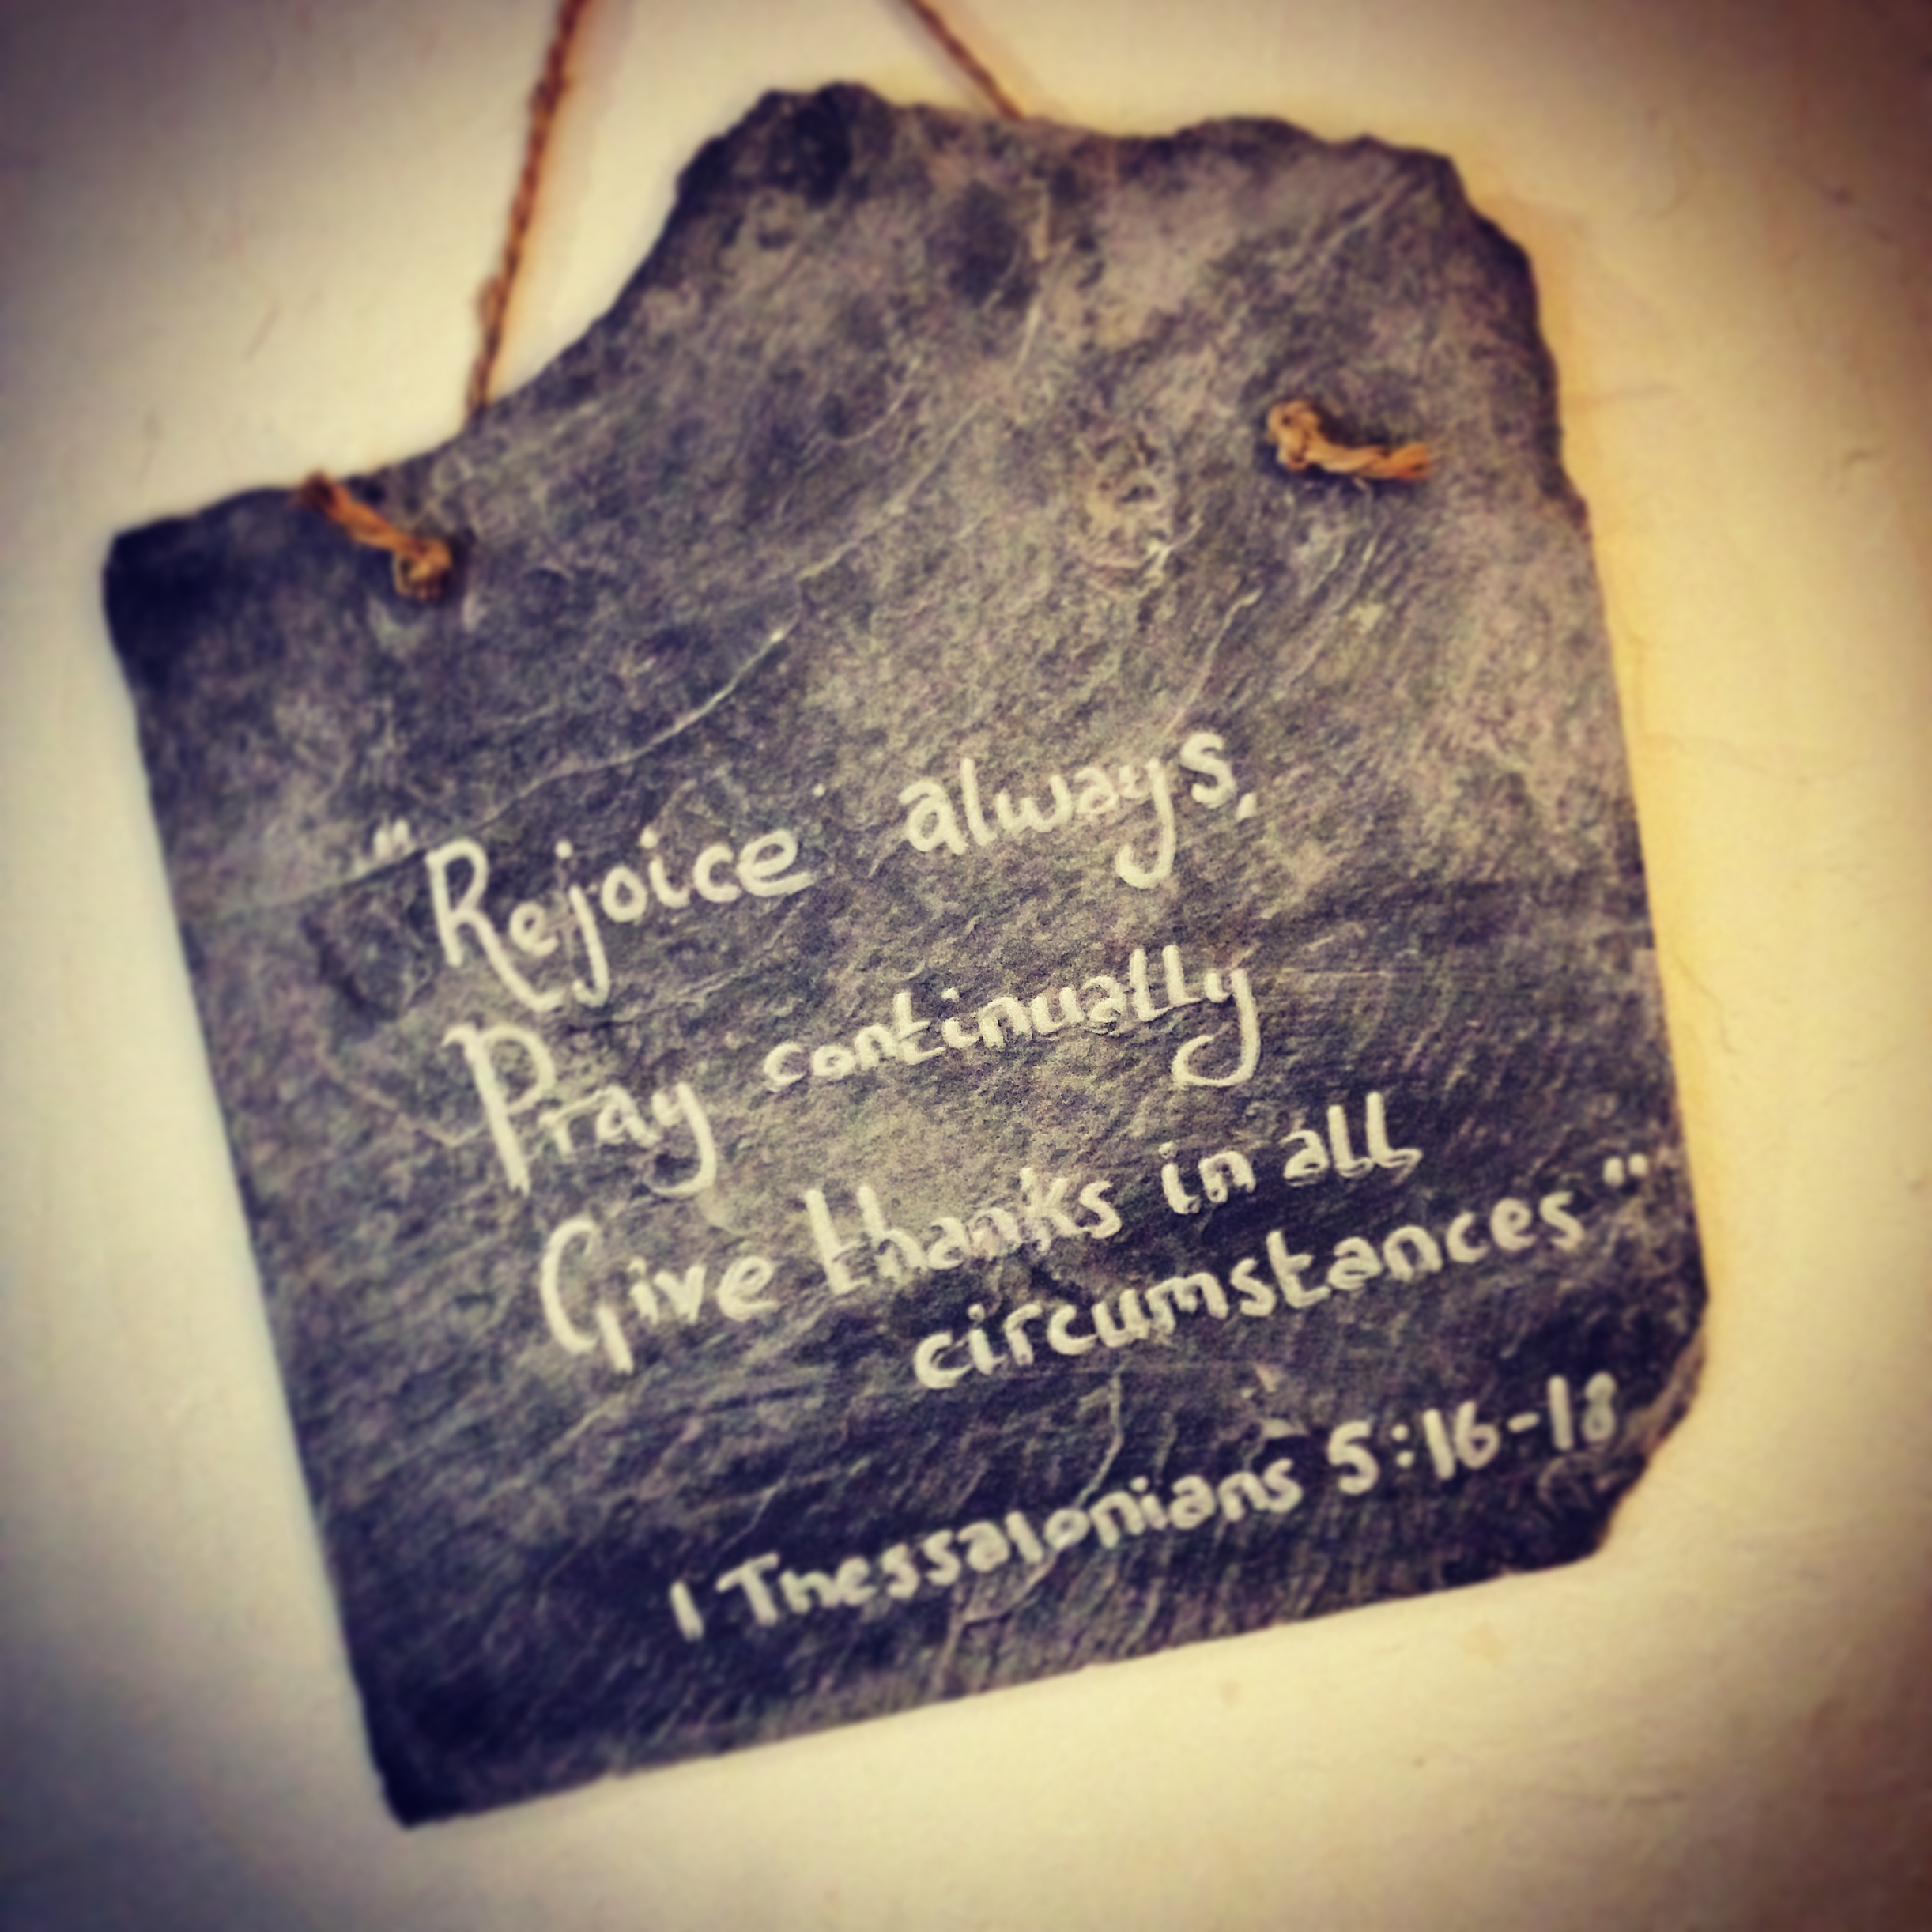 "Rejoice always,
Pray continually
Give thanks in all
circumstances"
1 Thessalonians 5:16-18